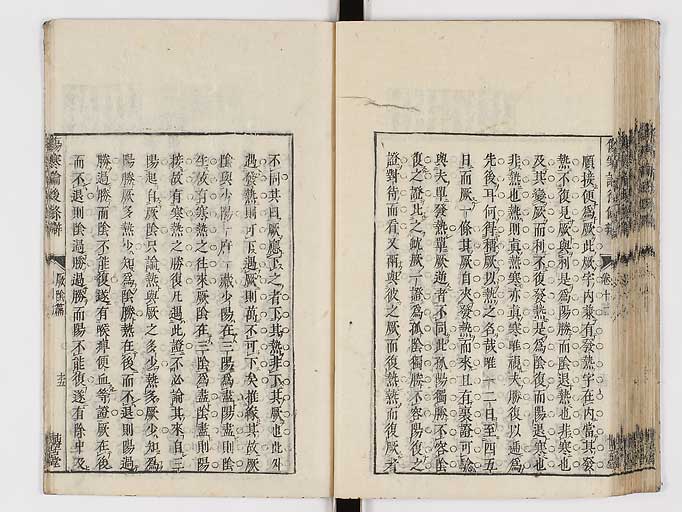 順接便為厥此厥字內兼有發熱字在內當其發
熱不復見厥與利是為陽勝而陰退熱也非寒也
及其變厥而利不復發熱是為陰復而陽退寒也
非熱也熱則真熱寒亦真寒唯視夫勝復以過為
先後耳何得積厥以熱之名哉唯一二日至四五
日而厥一條其厥自夾發熱而來且有裏證可驗
與夫單發熱單厥逆者不同此孤陽獨勝不容陰
復之證此之純厥一證為孤陰獨勝不容陽復之
證對待而看又兩與彼之厥而復熱熱而復厥者
不同其曰厥應下之者下其熱非下其厥也此外
遇發熱則可下遇厥則萬不可下矣推緣其故厥
陰與少陽一府一藏少陽在三陽為盡陽盡則陰
生故有寒熱之往來厥陰在三陰為盡陰盡則陽
接故有寒熱之勝復凡遇此證不必論其來自三
陽起自厥陰只論熱與厥之多少熱多厥少知為
陽勝厥多熱少知為陰勝熱在後而不退則陽過
勝過勝而陰不能復遂有喉痺便血等證厥在後
而不退則陰過勝過勝而陽不能復遂有除中及
傷寒論後條辨
厥陰篇
十五